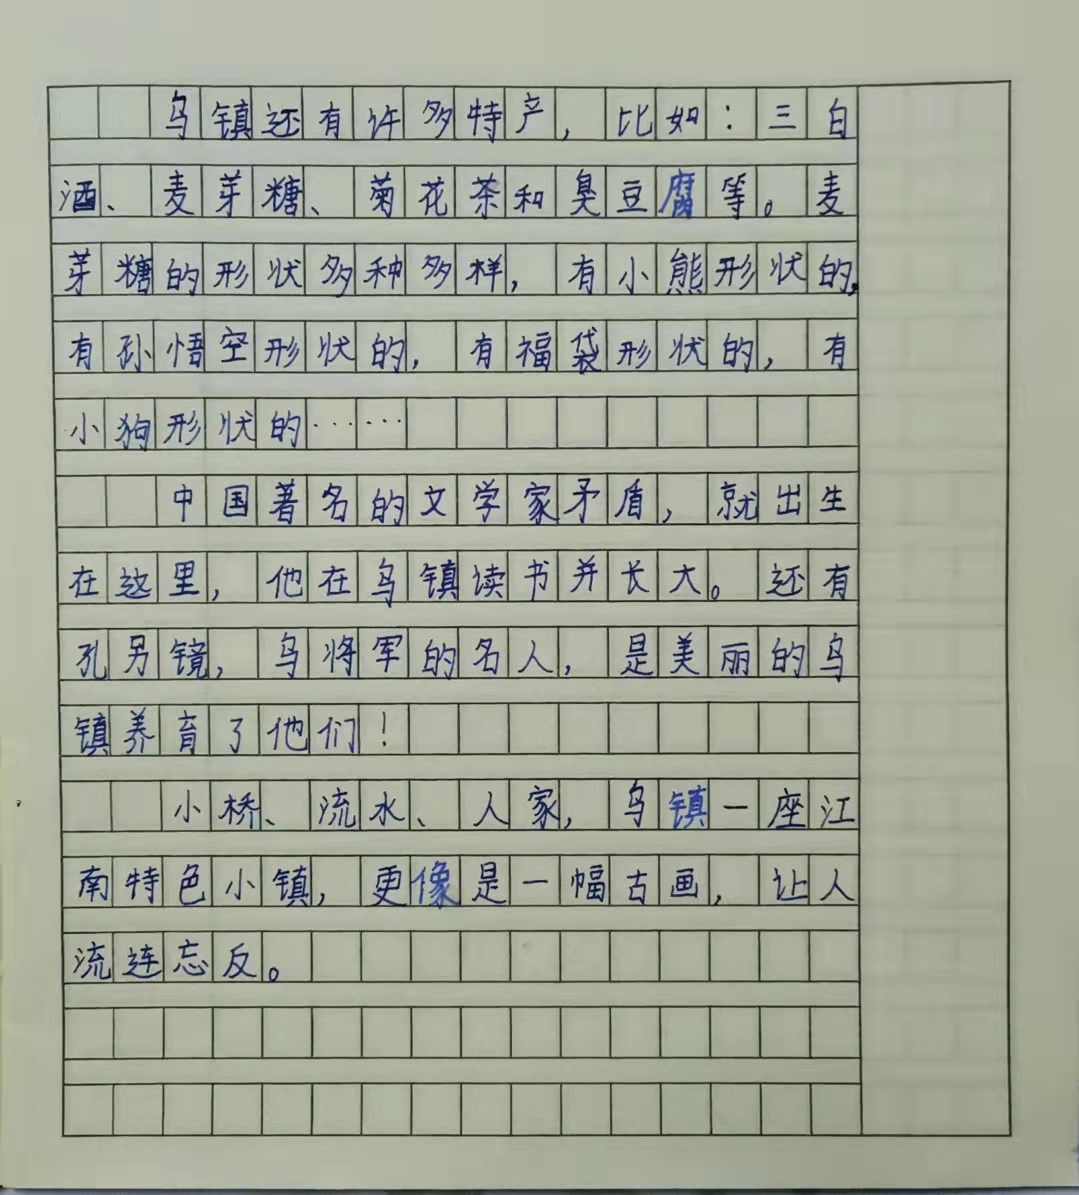 乌镇还有许多特产，比如：三白
酒、麦芽糖、菊花茶和臭豆腐等。麦
芽糖的形状多种多样，有小熊形状的，
有孙悟空形状的，有福袋形状的，有
小狗形状的……
中国著名的文学家矛盾，就出生
在这里，他在乌镇读书并长大。还有
孔另镜，乌将军的名人，是美丽的乌
镇养育了他们！
小桥、流水、人家，乌镇一座江
南特色小镇，更像是一幅古画，让人
流连忘反。